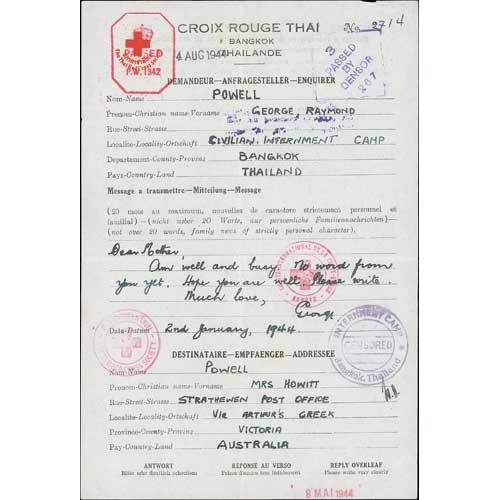 CROIX ROUGE THAI
No. 2714
BANGKOK
THAILANDE
PASSED
P.W. 1942
4 AUG 1944
3
PASSED
BY
CENSOR
207
DEMANDEUR—ANFRAGESTELLER—ENQUIRER
Nom-Name POWELL
Prenom-Christian name-Vorname GEORGE, RAYMOND
Rue-Street-Strasse
Localite-Locality-Ortschaft CIVILIAN. INTERNMENT CAMP
Departement-County-Provinz BANGKOK
Pays-Country-Land THAILAND
Message a transmettre—Mitteilung—Message
(20 mots au maximum, nouvelles de caractere strictement personnel et
familial)—(nicht ueber 20 Worte, nur persoenliche Familiennachrichten)—
(not over 20 words, family news of strictly personal character).
Dear Mother,
Am well and busy. No word from
you yet. Hope you are well. Please write.
Much love,
George
Date-Datum 2nd January, 1944.
INTERNMENT CAMP
CENSORED
Bangkok, Thailand
DESTINATAIRE—EMPFAENGER—ADDRESSEE
Nom-Name POWELL
Prenom-Christian name-Vorname MRS HOWITT
Rue-Street-Strasse STRATHEWEN POST OFFICE
Localite-Locality-Ortschaft VIA ARTHUR'S CREEK
Province-County-Provinz VICTORIA
Pay-Country-Land AUSTRALIA
ANTWORT RÉPONSE AU VERSO REPLY OVERLEAF
Bitte sehr deutlich schreiben Prière d'écrire très lisiblement Please write very clearly
8 MAI 1944